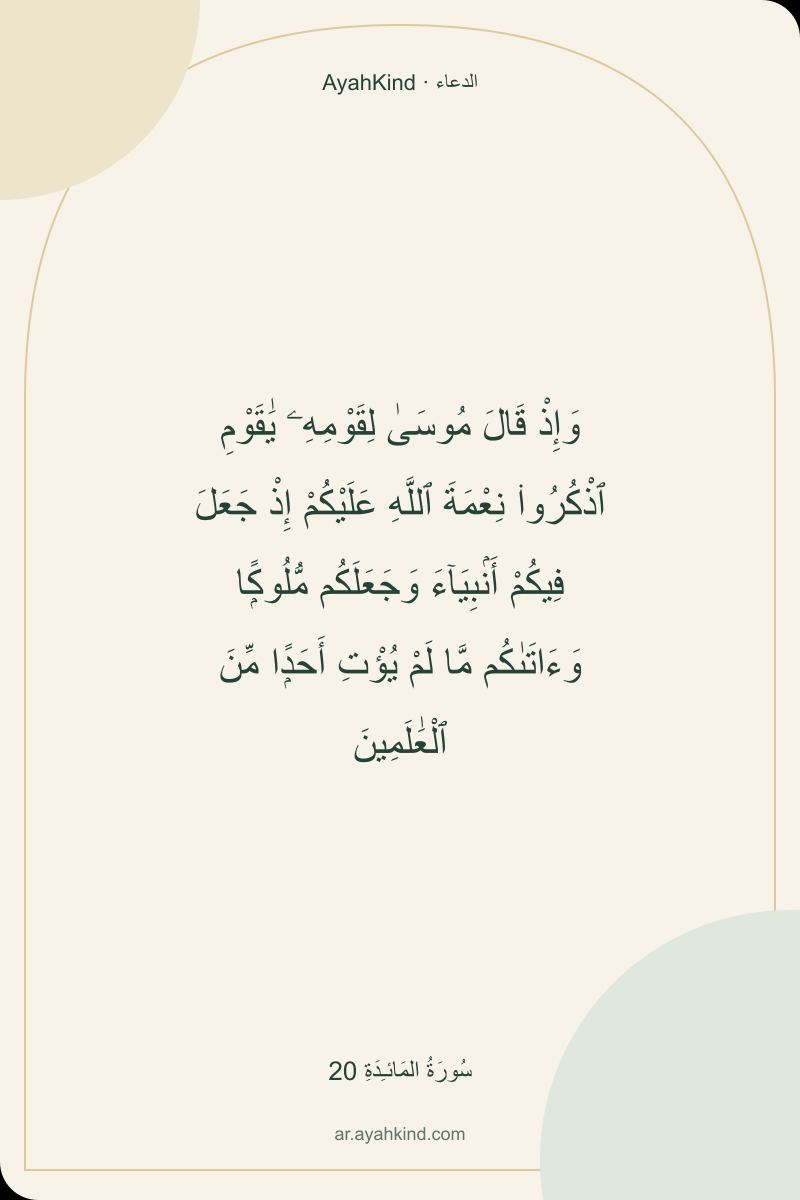 AyahKind · الدعاء
وَإِذْ قَالَ مُوسَىٰ لِقَوْمِهِۦ يَٰقَوْمِ
ٱذْكُرُوا۟ نِعْمَةَ ٱللَّهِ عَلَيْكُمْ إِذْ جَعَلَ
فِيكُمْ أَنۢبِيَآءَ وَجَعَلَكُم مُّلُوكًۭا
وَءَاتَىٰكُم مَّا لَمْ يُؤْتِ أَحَدًۭا مِّنَ
ٱلْعَٰلَمِينَ
سُورَةُ المَائـِدَةِ 20
ar.ayahkind.com